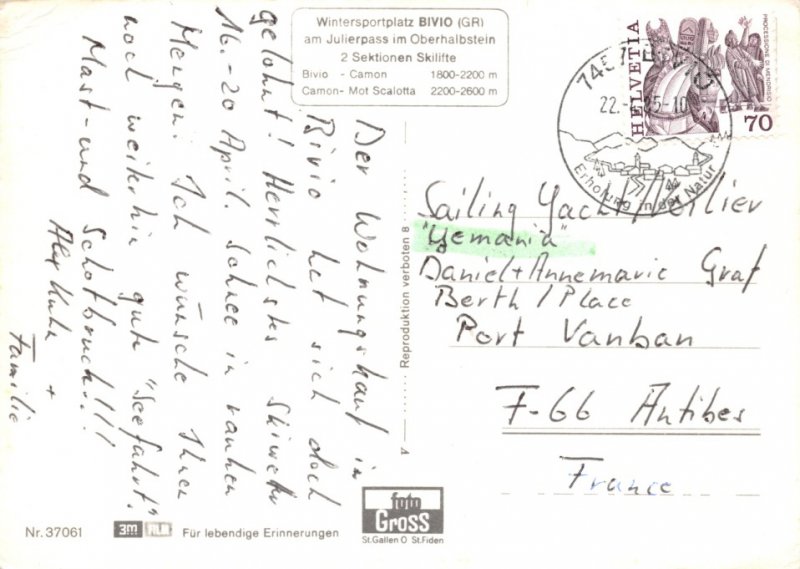 Wintersportplatz BIVIO (GR)
am Julierpass im Oberhalbstein
2 Sektionen Skilifte
Bivio - Camon 1800-2200 m
Camon- Mot Scalotta 2200-2600 m
Der Wohnungskauf in
Bivio hat sich doch
gelohnt! Herrlichstes Skiwetter
16.-20 April. Schnee in rauhen
Mengen. Ich wünsche Ihnen
noch weiterhin gute "Seefahrt".
Mast- und Schotbruch!!!
Alex Kuhn +
Familie
HELVETIA
PROCESSIONE DI MENDRISIO
70
22.
85-10
Erholung in der Natur
Sailing Yacht/Voilier
"Yemania"
Daniel + Annemarie Graf
Berth / Place
Port Vanban
F-66 Antibes
France
A Reproduktion verboten 8
Nr. 37061
3m
Für lebendige Erinnerungen
foto
Gross
St.Gallen O St.Fiden